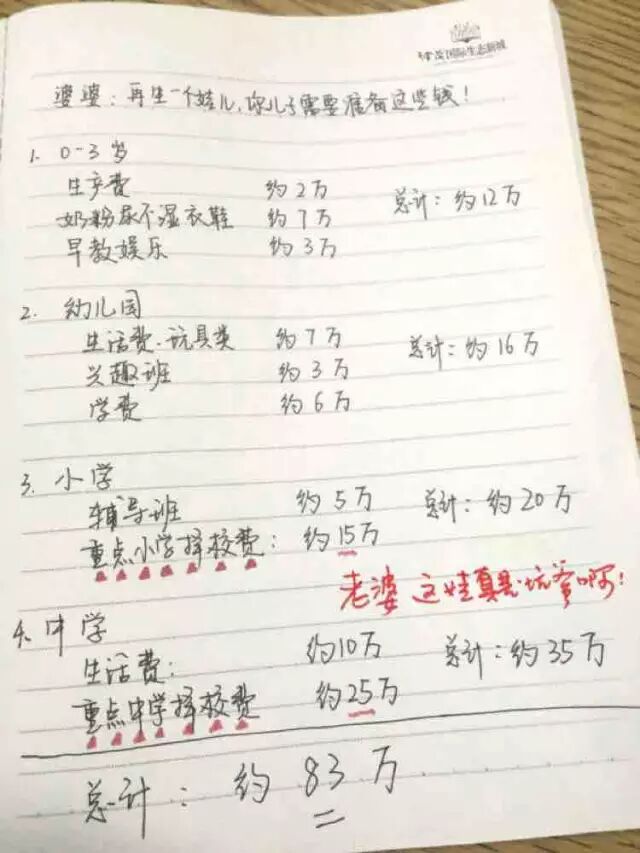 国际生态新城
婆婆：再生一个娃儿，你儿子需要准备这些钱！
1. 0-3岁
生产费 约2万
奶粉尿不湿衣鞋 约7万 总计：约12万
早教娱乐 约3万
2. 幼儿园
生活费.玩具类 约7万 总计：约16万
兴趣班 约3万
学费 约6万
3. 小学
辅导班 约5万 总计：约20万
重点小学择校费： 约15万
老婆 这娃真是坑爹啊！
4. 中学
生活费： 约10万 总计：约35万
重点中学择校费 约25万
总计： 约83万